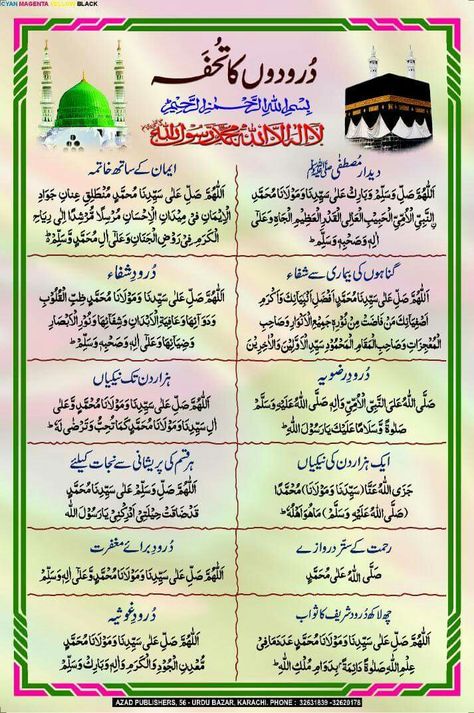 CYAN MAGENTA YELLOW BLACK
دُرودوں کا تحُفَہ
بِسْمِ اللهِ الرَّحْمٰنِ الرَّحِیْمِ
لَا اِلٰهَ اِلَّا اللهُ مُحَمَّدٌ رَّسُوْلُ اللهِ
دیدارِ مصطفٰی ﷺ
اَللّٰهُمَّ صَلِّ وَسَلِّمْ وَبَارِكْ عَلٰی سَیِّدِنَا مُحَمَّدِ
النَّبِیِّ الْاُمِّیِّ الْحَبِیْبِ الْعَالِی الْقَدْرِ الْعَظِیْمِ الْجَاهِ وَعَلٰی
اٰلِهٖ وَصَحْبِهٖ وَسَلِّمْ ط
ایمان کے ساتھ خاتمہ
اَللّٰهُمَّ صَلِّ عَلٰی سَیِّدِنَا مُحَمَّدٍ مُنْطَلِقِ عِنَانِ جَوَادِ
الْاِیْمَانِ فِیْ مِیْدَانِ الْاِحْسَانِ مُرْسِلًا مُّرْشِدًا اِلٰی رِیَاحِ
الْكَرَمِ فِیْ رَوْضِ الْجِنَانِ وَعَلٰی اٰلِ مُحَمَّدٍ وَّسَلِّمْ ط
گناہوں کی بیماری سے شفاء
اَللّٰهُمَّ صَلِّ عَلٰی سَیِّدِنَا مُحَمَّدٍ اَفْضَلِ اَنْبِیَائِكَ وَاَكْرَمِ
اَصْفِیَائِكَ مَنْ فَاضَتْ مِنْ نُّوْرِهٖ جَمِیْعُ الْاَنْوَارِ وَصَاحِبِ
الْمُعْجِزَاتِ وَصَاحِبِ الْمَقَامِ الْمَحْمُوْدِ سَیِّدِ الْاَوَّلِیْنَ وَالْاٰخِرِیْنَ
دُرودِ شفاء
اَللّٰهُمَّ صَلِّ عَلٰی سَیِّدِنَا وَمَوْلَانَا مُحَمَّدٍ طِبِّ الْقُلُوْبِ
وَدَوَآئِهَا وَعَافِیَةِ الْاَبْدَانِ وَشِفَآئِهَا وَنُوْرِ الْاَبْصَارِ
وَضِیَآئِهَا وَعَلٰی اٰلِهٖ وَصَحْبِهٖ وَسَلِّمْ ط
دُرودِ رضویہ
صَلَّی اللهُ عَلَی النَّبِیِّ الْاُمِّیِّ وَاٰلِهٖ صَلَّی اللهُ عَلَیْهِ وَسَلَّمَ
صَلٰوةً وَّسَلَامًا عَلَیْكَ یَا رَسُوْلَ اللهِ ط
ہزار دن تک نیکیاں
اَللّٰهُمَّ صَلِّ عَلٰی سَیِّدِنَا وَمَوْلَانَا مُحَمَّدٍ وَّعَلٰی
اٰلِ سَیِّدِنَا وَمَوْلَانَا مُحَمَّدٍ كَمَا تُحِبُّ وَتَرْضٰی لَهٗ ط
ایک ہزار دن کی نیکیاں
جَزَی اللهُ عَنَّا (سَیِّدَنَا وَمَوْلَانَا) مُحَمَّدًا
(صَلَّی اللهُ عَلَیْهِ وَسَلَّمَ) مَا هُوَ اَهْلُهٗ ط
ہر قسم کی پریشانی سے نجات کیلئے
اَللّٰهُمَّ صَلِّ وَسَلِّمْ عَلٰی سَیِّدِنَا مُحَمَّدٍ
قَدْ ضَاقَتْ حِیْلَتِیْ اَدْرِكْنِیْ یَا رَسُوْلَ اللهِ
رحمت کے ستّر دروازے
صَلَّی اللهُ عَلٰی مُحَمَّدٍ
دُرود برائے مغفرت
اَللّٰهُمَّ صَلِّ عَلٰی سَیِّدِنَا وَمَوْلَانَا مُحَمَّدٍ وَّعَلٰی اٰلِهٖ وَسَلِّمْ
چھ لاکھ درود شریف کا ثواب
اَللّٰهُمَّ صَلِّ عَلٰی سَیِّدِنَا مُحَمَّدٍ عَدَدَ مَا فِیْ
عِلْمِ اللهِ صَلٰوةً دَآئِمَةً بِدَوَامِ مُلْكِ اللهِ ط
دُرودِ غوثیہ
اَللّٰهُمَّ صَلِّ عَلٰی سَیِّدِنَا وَمَوْلَانَا مُحَمَّدٍ
مَّعْدِنِ الْجُوْدِ وَالْكَرَمِ وَاٰلِهٖ وَبَارِكْ وَسَلِّمْ ط
AZAD PUBLISHERS, 56 - URDU BAZAR, KARACHI, PHONE : 32631839 -32620178